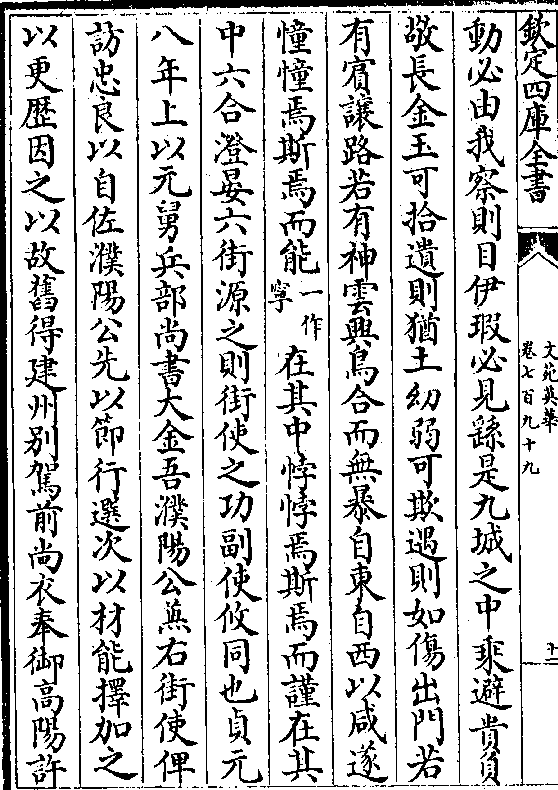 欽定四庫全書
文苑英華
卷七百九十九
十二
動必由我察則目伊瑕必見繇是九城之中乗避貴負
敬長金玉可拾遺則猶土幼弱可欺遇則如傷出門若
有賔讓路若有神雲興鳥合而無暴自東自西以咸遂
憧憧焉斯焉而能一作寧在其中悖悖焉斯焉而謹在其
中六合澄晏六街源之則街使之功副使攸同也貞元
八年上以元舅兵部尚書大金吾濮陽公兼右街使俾
訪忠良以自佐濮陽公先以節行選次以材能擇加之
以更歴因之以故舊得建州别駕前尚衣奉御高陽許